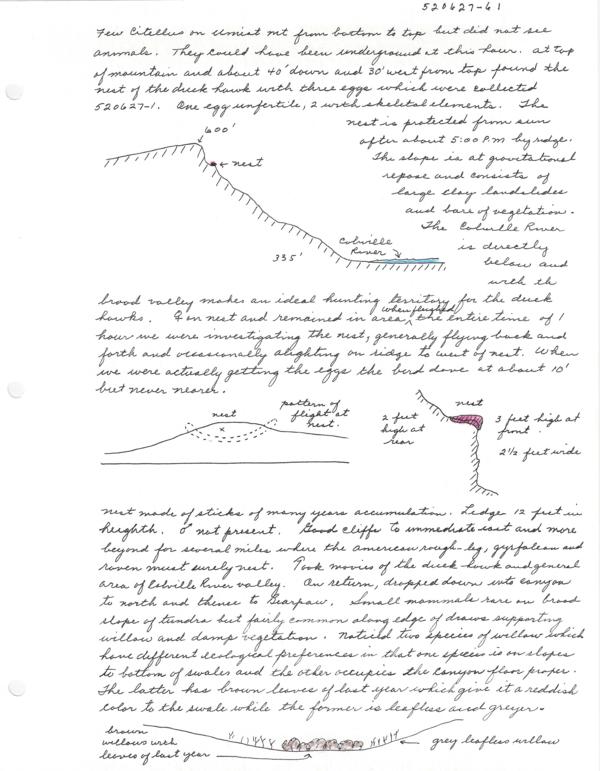 520627-61
Few Citellus on Umiat mt from bottom to top but did not see
animals. They could have been underground at this hour. At top
of mountain and about 40' down and 30' west from top found the
nest of the duck hawk with three eggs which were collected
520627-1. One egg unfertile, 2 with skeletal elements. The
nest is protected from sun
after about 5:00 P.M by ridge.
The slope is at gravitational
repose and consists of
large clay landslides
and bare of vegetation.
The Colville River
is directly
below and
with th
600'
nest
Colville
River
335'
broad valley makes an ideal hunting territory for the duck
hawks. ♀ on nest and remained in area, when flushed the entire time of 1
hour we were investigating the nest, generally flying back and
forth and occasionally alighting on ridge to west of nest. When
we were actually getting the eggs the bird dove at about 10'
but never nearer.
nest
x
pattern of
flight at
nest.
nest
2 feet
high at
rear
3 feet high at
front.
2½ feet wide
nest made of sticks of many years accumulation. Ledge 12 feet in
heighth. ♂ not present. Good cliffs to immediate east and more
beyond for several miles where the american rough-leg, gyrfalcon and
raven must surely nest. Took movies of the duck hawk and general
area of Colville River valley. On return, dropped down into canyon
to north and thence to Bearpaw. Small mammals rare on broad
slope of tundra but fairly common along edge of draws supporting
willow and damp vegetation. Noticed two species of willow which
have different ecological preferences in that one species is on slopes
to bottom of swales and the other occupies the canyon floor proper.
The latter has brown leaves of last year which give it a reddish
color to the swale while the former is leafless and greyer.
brown
willows with
leaves of last year
grey leafless willow